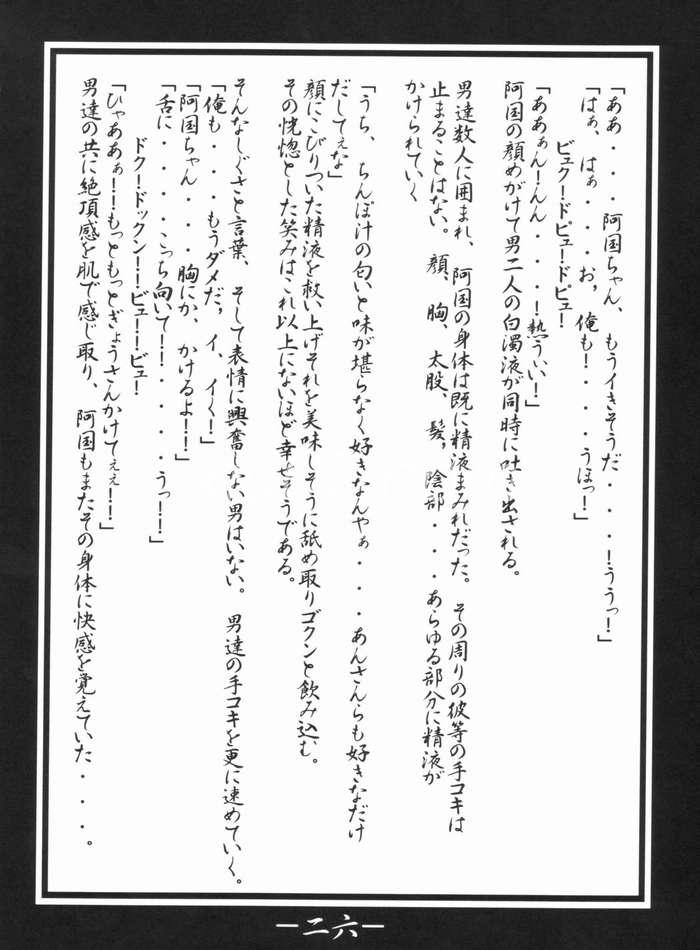 「ああ・・・阿国ちゃん、もうイきそうだ・・・！ううっ！」
「はぁ、はぁ・・・お，俺も！・・・うほっ！」
ビュク！ドビュー！ドピュ！
「あぁぁん！んん・・・！熱うぃぃ！」
阿国の顔めがけて男二人の白濁液が同時に吐き出される。
男達数人に囲まれ、阿国の身体は既に精液まみれだった。その周りの彼等の手コキは
止まることはない。顔、胸、太股、髪，陰部・・・あらゆる部分に精液が
かけられていく
「うち、ちんぽ汁の匂いと味が堪らなく好きなんやぁ・・・あんさんらも好きなだけ
だしてぇな」
顔にこびりついた精液を救い上げそれを美味しそうに舐め取りゴクンと飲み込む。
その恍惚とした笑みはこれ以上にないほど幸せそうである。
そんなしぐさと言葉、そして表情に興奮しない男はいない。男達の手コキを更に速めていく。
「俺も・・・もうダメだ，イ、イく！」
「阿国ちゃん・・・胸にか、かけるよ！！」
「舌に・・・こっち向いて！！・・・うっ！！」
ドク！ドックン！！ビュー！！ビュ！
「ひゃああぁ！！もっともっとぎょうさんかけてぇぇ！！」
男達の共に絶頂感を肌で感じ取り、阿国もまたその身体に快感を覚えていた・・・。
－二六－